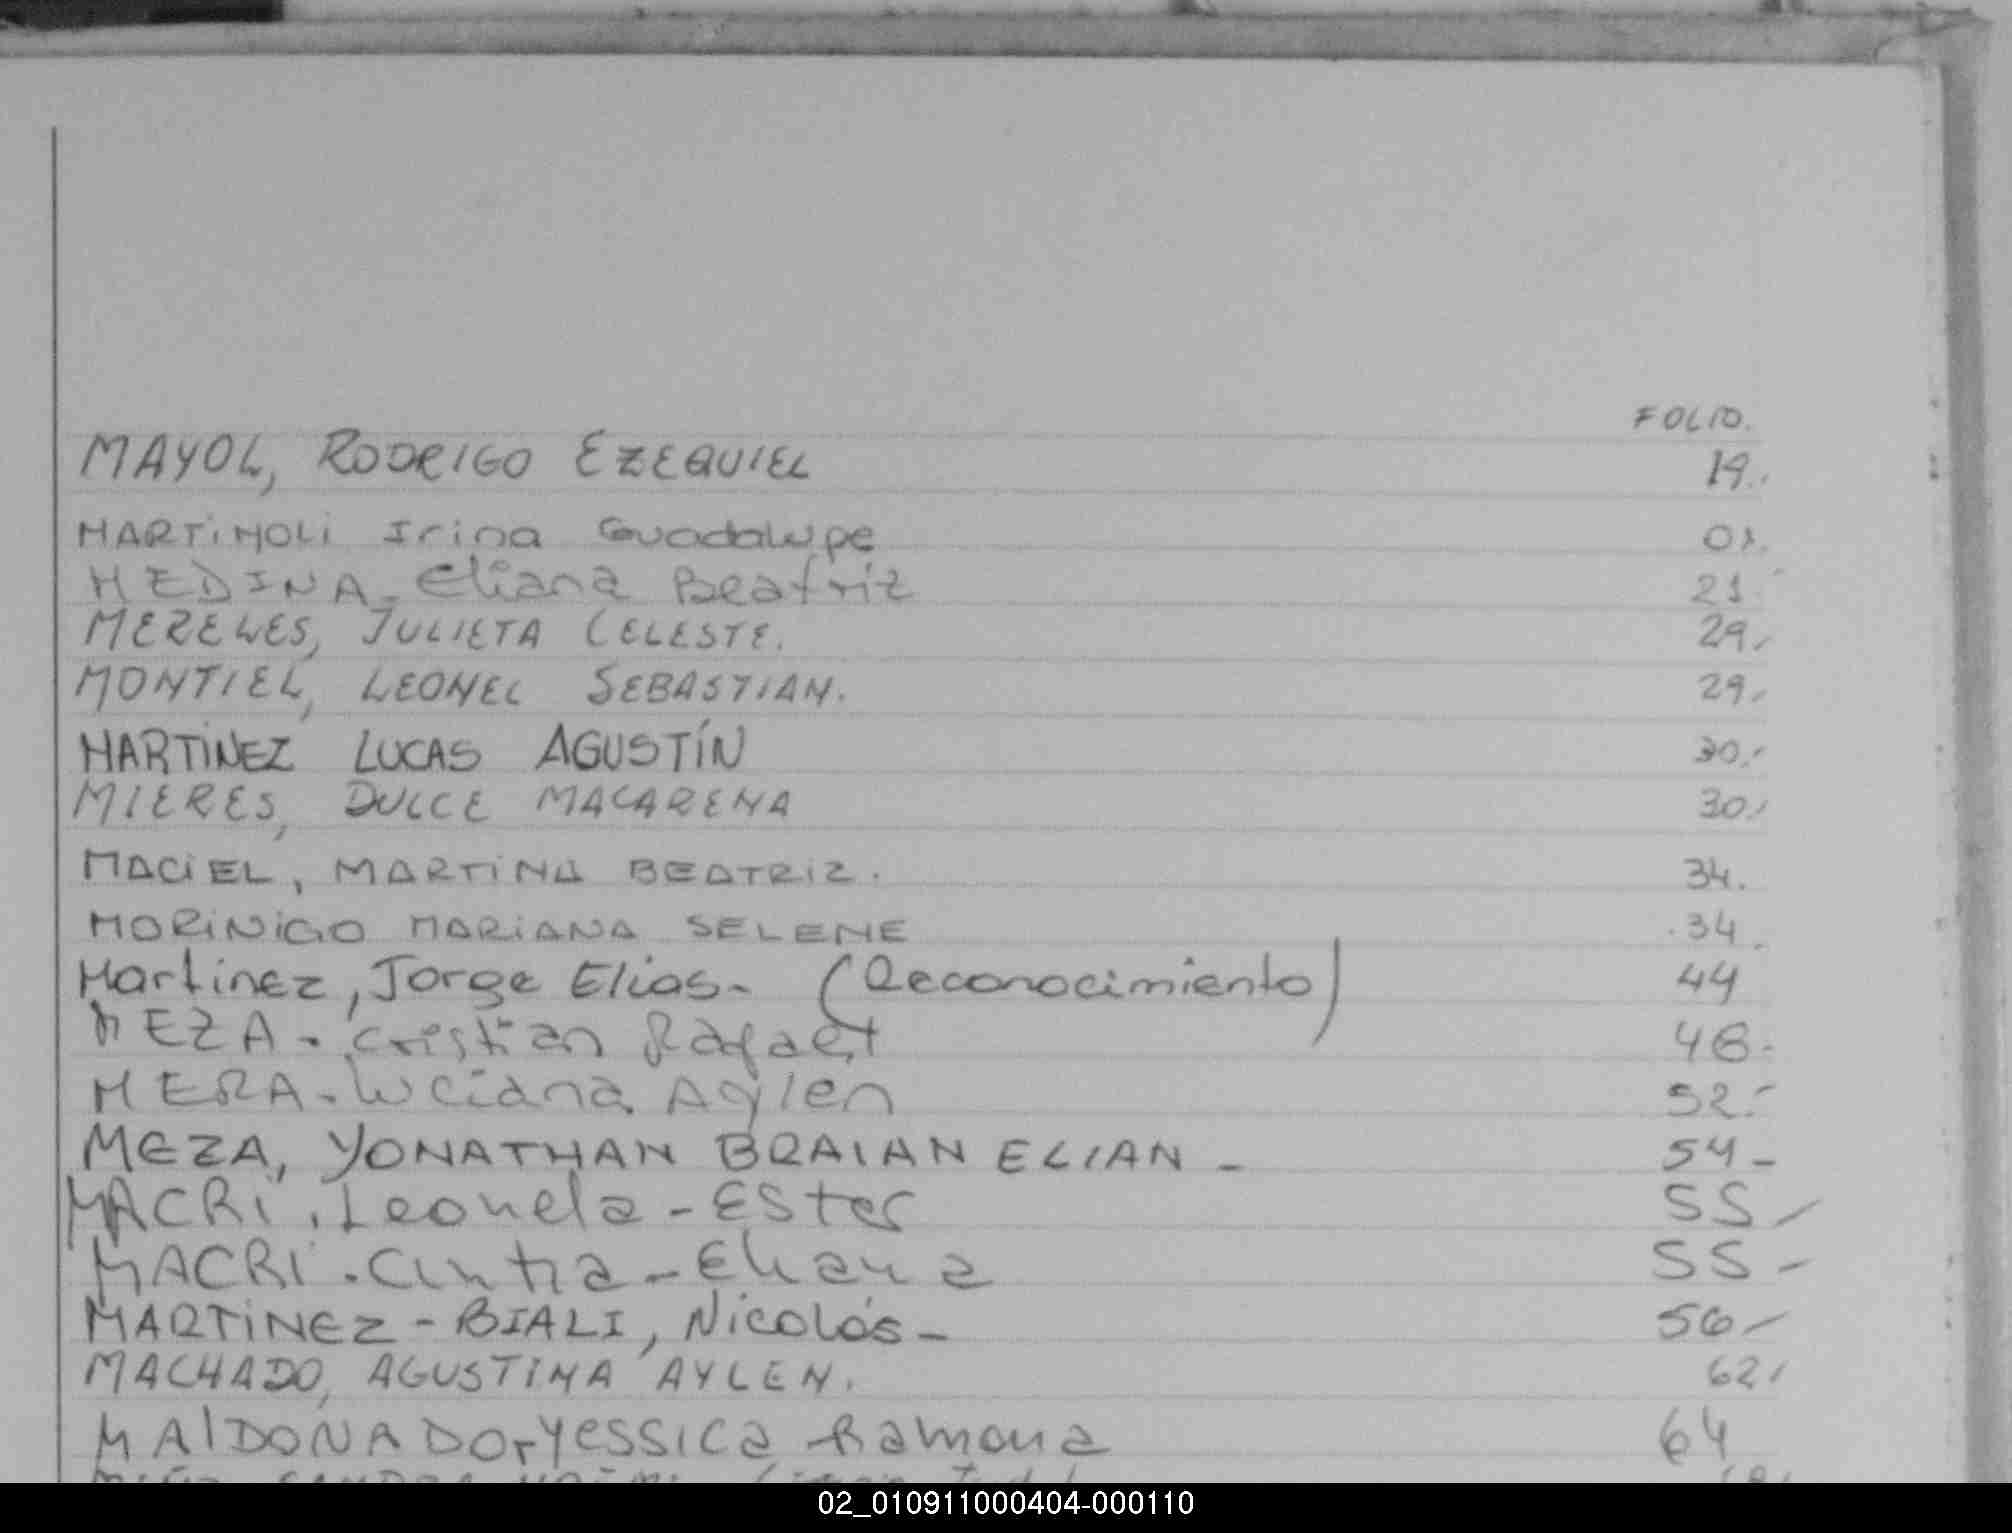 FOLIO.
MAYOL, RODRIGO EZEQUIEL 19.
MARTINOLI Irina Guadalupe 01.
MEDINA - Eliana Beatriz 21
MERELES, JULIETA CELESTE. 29.
MONTIEL, LEONEL SEBASTIAN. 29.
MARTINEZ LUCAS AGUSTÍN 30.
MIERES, DULCE MACARENA 30.
MACIEL, MARTINA BEATRIZ. 34.
MORINIGO MARIANA SELENE 34.
Martinez, Jorge Elias - (Reconocimiento) 44
MEZA - Cristian Rafael 48-
MERA - Luciana Aylen 52-
MEZA, YONATHAN BRAIAN ELIAN - 54-
MACRI . Leonela - Ester 55-
MACRI - Cintia - Eliana 55-
MARTINEZ - BIALI, Nicolás - 56-
MACHADO, AGUSTINA AYLEN. 62.
MALDONADO, Yessica Ramona 64
SANDRA
02_010911000404-000110